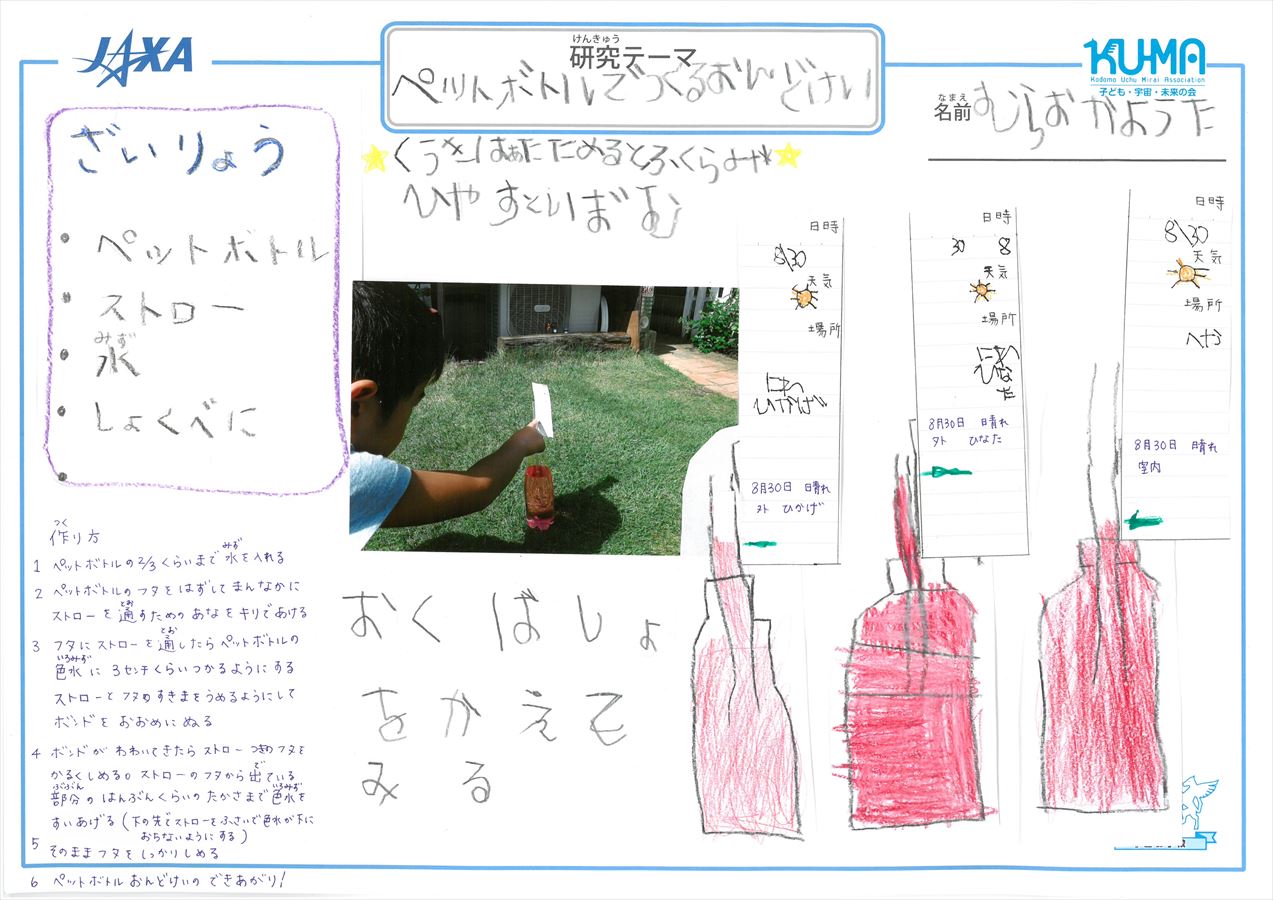 JAXA
けんきゅう
研究テーマ
ペットボトルでつくるおんどけい
KUMA
Kodomo Uchu Mirai Association
子ども・宇宙・未来の会
なまえ
名前 むらおかようた
ざいりょう
・ペットボトル
・ストロー
みず
・水
・しょくべに
・
くうきはあたためるとふくらみ
ひやすとしぼむ
つく
作り方
1 ペットボトルの2/3くらいまで水を入れる
みず
2 ペットボトルのフタをはずしてまんなかに
ストローを通すためのあなをキリであける
とお
3 フタにストローを通したらペットボトルの
とお
色水に3センチくらいつかるようにする
いろみず
ストローとフタのすきまをうめるようにして
ボンドをおおめにぬる
4 ボンドがかわいてきたらストローつきのフタを
かるくしめる。ストローのフタから出ている
で
部分のはんぶんくらいのたかさまで色水を
ぶぶん
いろみず
すいあげる(下の先でストローをふさいで色水が下に
おちないようにする)
5 そのままフタをしっかりしめる
6 ペットボトルおんどけいのできあがり!
おくばしょ
をかえて
みる
日時
8/30
天気
場所
そと
ひかげ
8月30日 晴れ
外 ひかげ
日時
30 8
天気
場所
ひなた
8月30日 晴れ
外 ひなた
日時
8/30
天気
場所
へや
8月30日 晴れ
室内